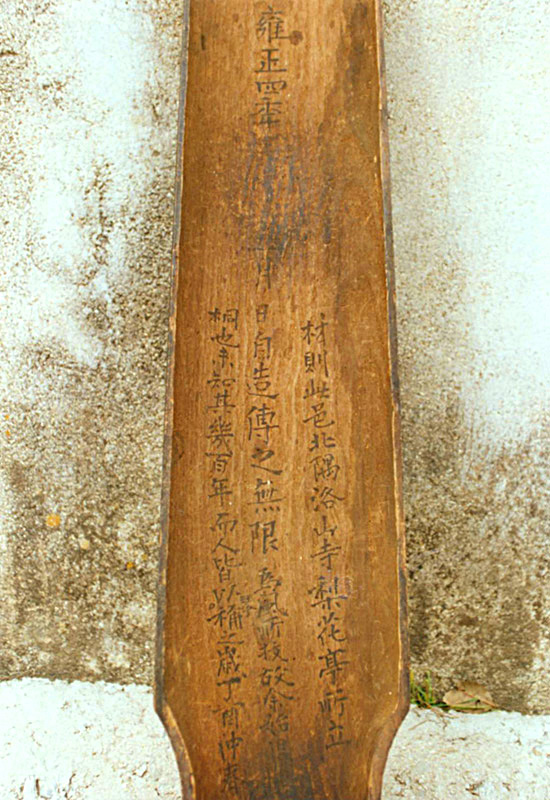 雍正四年
月
日自造傳之無限
材則此邑北隅洛山寺梨花亭所立
桐也未知其幾百年而人皆以稱之歲丁酉仲春
為風所拔故余始